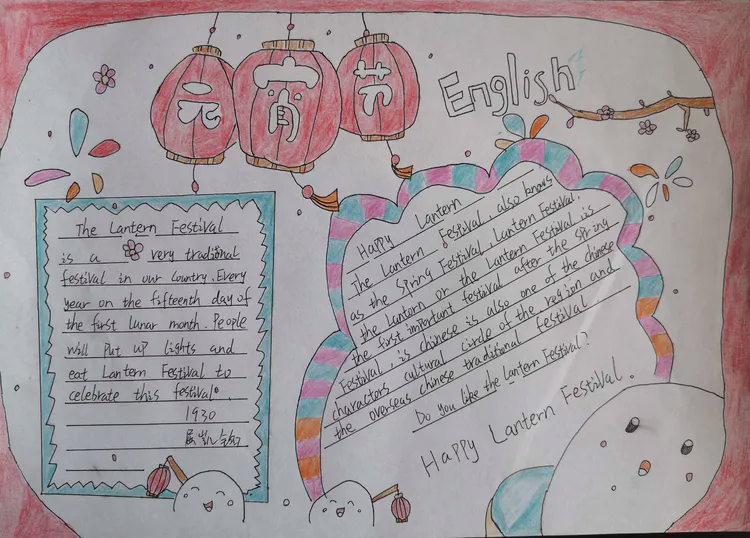 元宵节
English
The Lantern Festival
is a very traditional
festival in our country. Every
year on the fifteenth day of
the first lunar month. People
will put up lights and
eat Lantern Festival to
celebrate this festival.
1930
Happy Lantern
The Lantern Festival, also knows
as the Spring Festival, Lantern Festival,
the Lantern or the Lantern Festival is
the first important festival after the Spring
Festival, is chinese is also one of the chinese
characters cultural circle of the region and
the overseas chinese traditional festival.
Do you like the Lantern Festival?
Happy Lantern Festival.